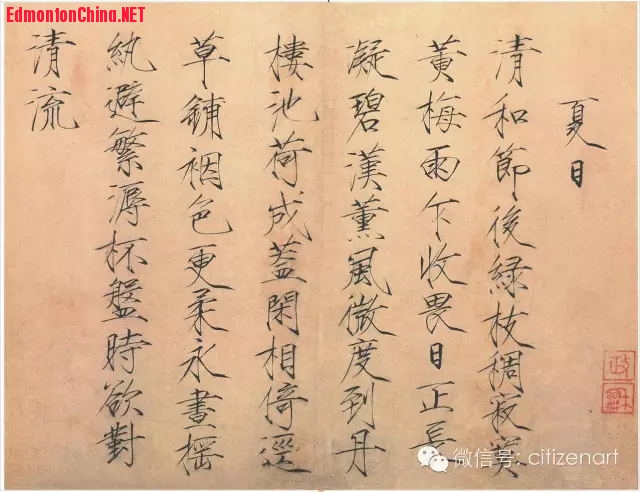 EdmontonChina.NET
夏日
清和節後緑枝稠寂寞
黃梅雨乍收畏日正長
凝碧漢薰風微度到丹
樓池荷成蓋閑相倚逕
草鋪裀色更柔永晝搖
紈避繁溽杯盤時欲對
清流
政和
微信号: citizenart